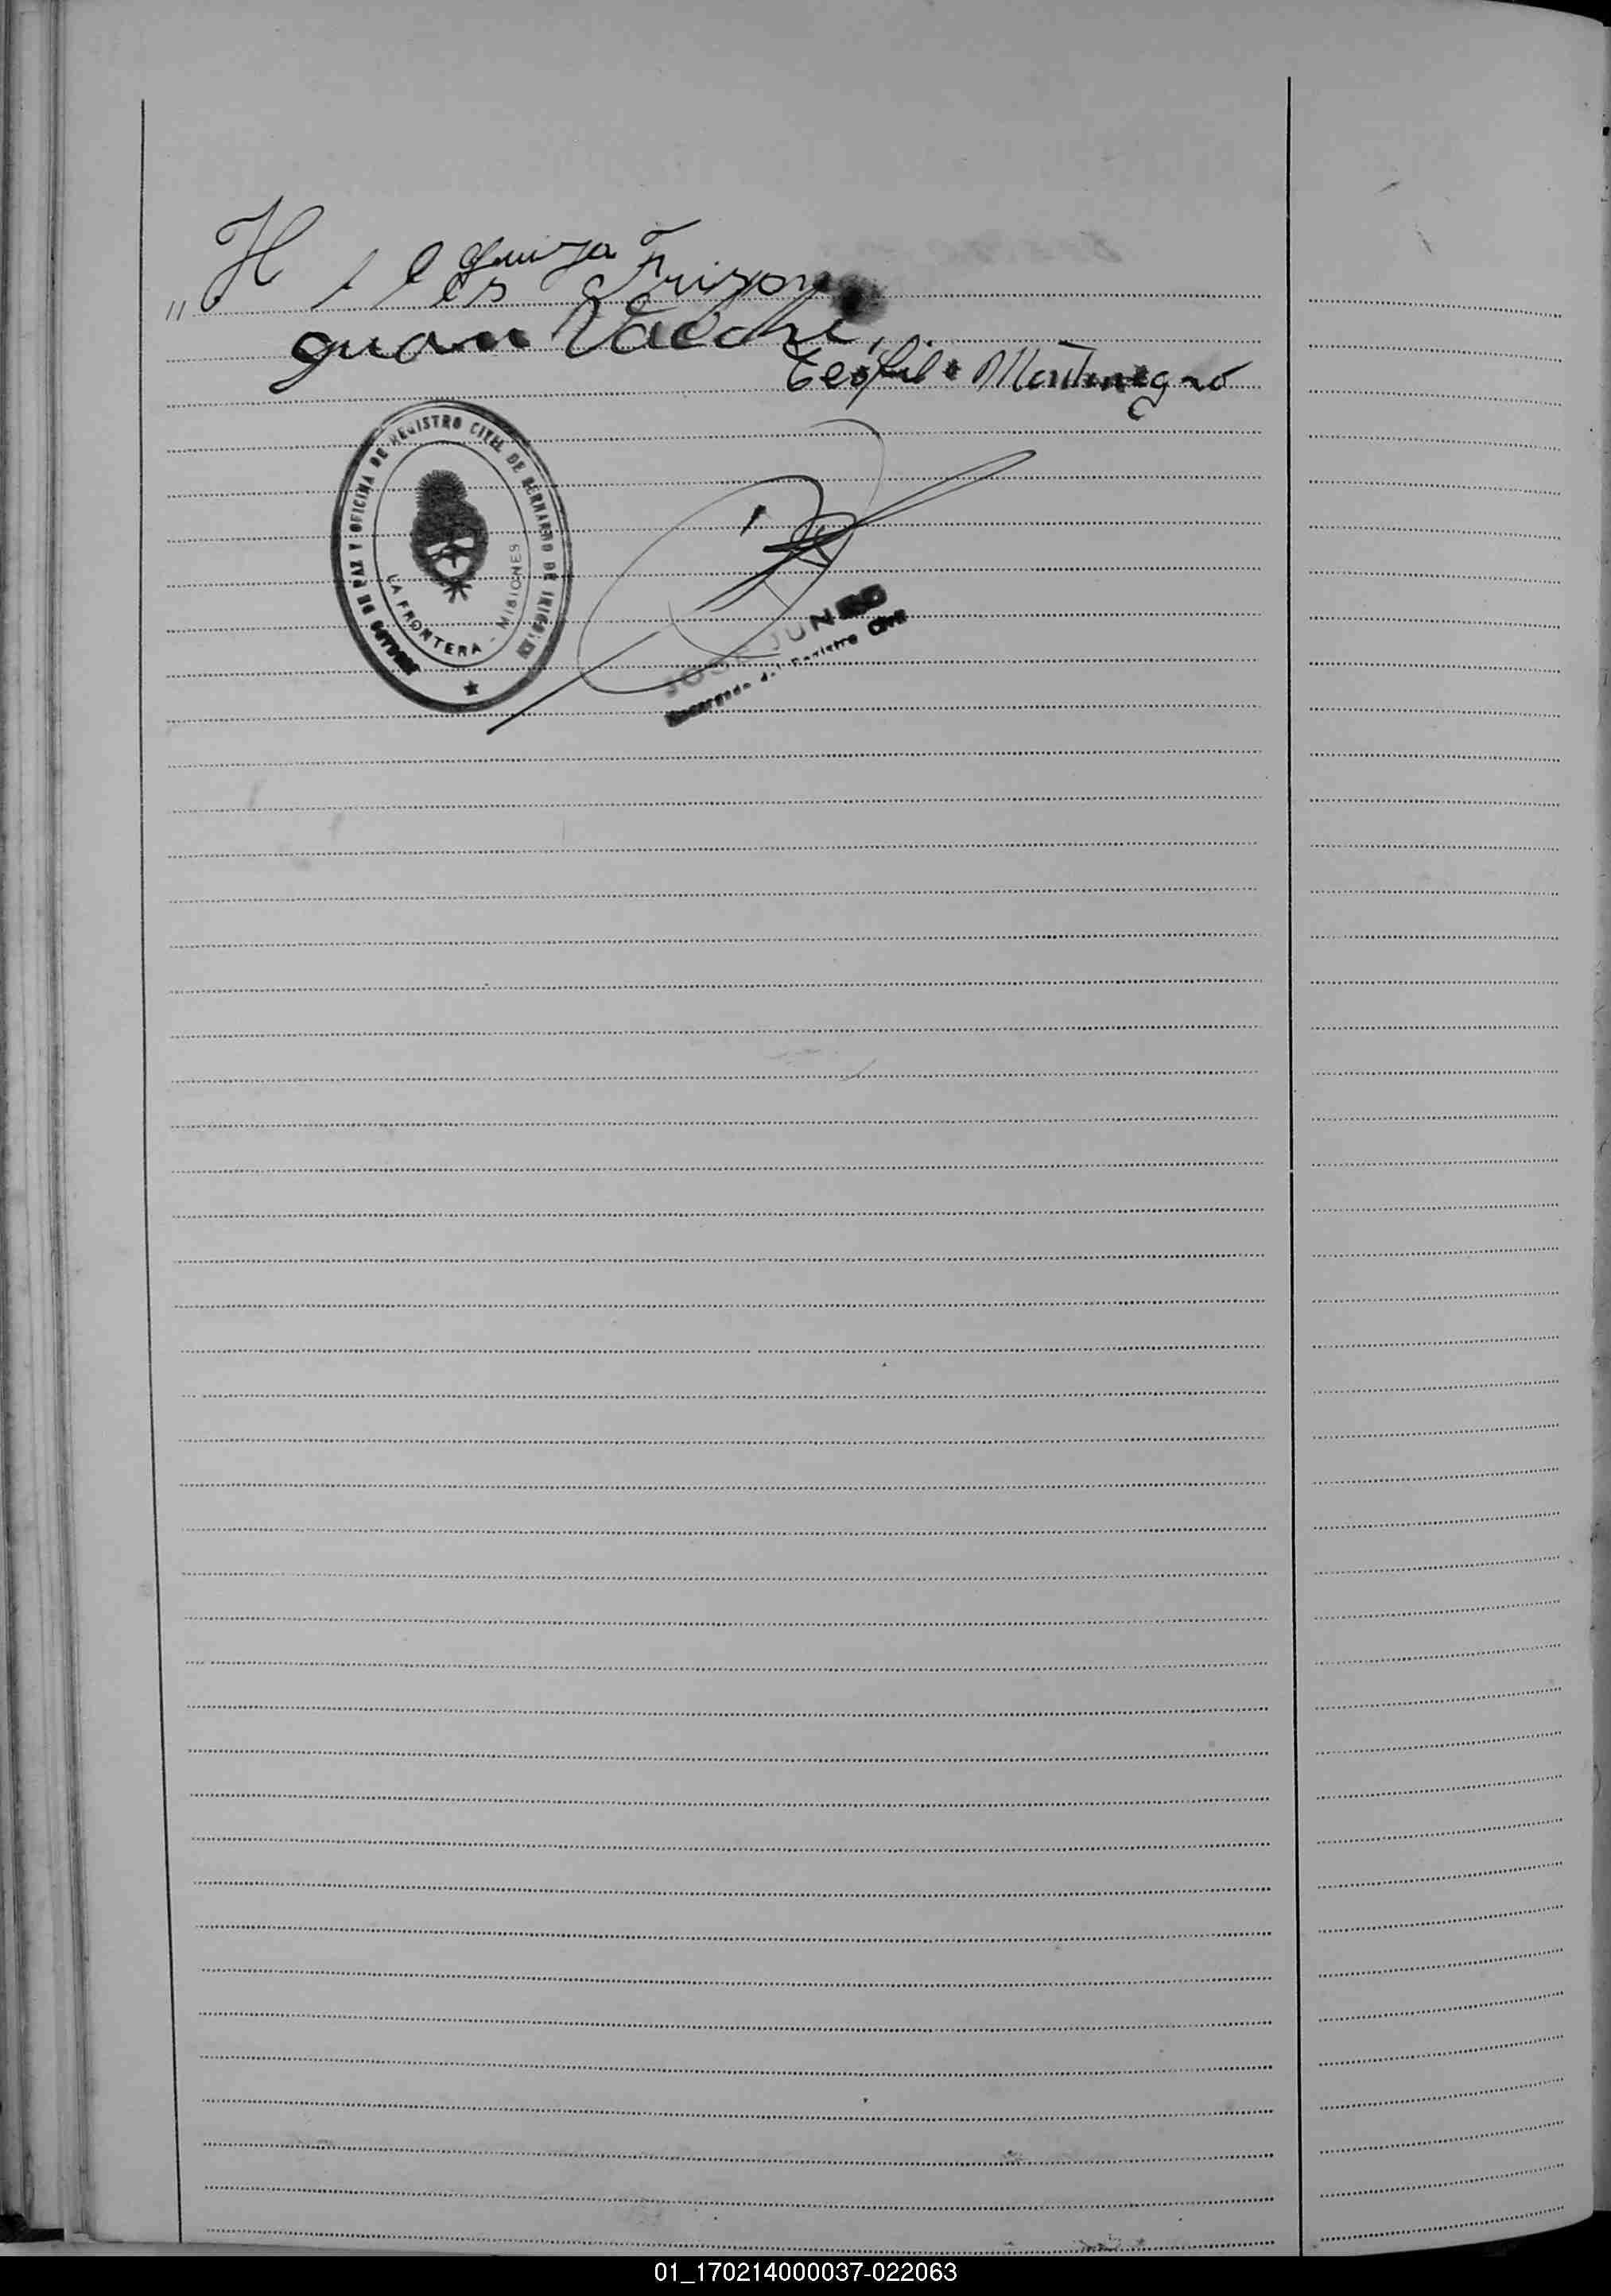 Luiza Frizon
Juan Vacchi
Teófilo Montenegro
DE PAZ Y OFICINA DE REGISTRO CIVIL DE BERNARDO DE IRIGOYEN
LA FRONTERA - MISIONES
JOSE JUNCO
Encargado del Registro Civil
01_170214000037-022063